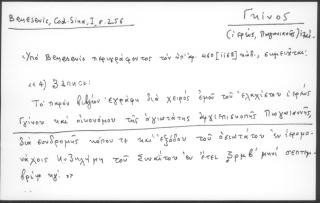 Benesevic, Cod. Sina, I, σ. 256
Γκίνος
(ἱερεύς, Πωγωνιανῆς)
Ὑπὸ Benesevic περιγράφοντος τὸν ὑπ' ἀρ. 460 [1168] κώδ., σημειοῦται:
«4) Запись:
Τὸ παρὸν βιβλίον ἐγράφη διὰ χειρὸς ἐμοῦ τοῦ ἐλαχίστου ἱερέως
Γγίνου καὶ οἰκονόμου τῆς ἁγιωτάτης ἀρχιεπισκοπῆς Πωγωιαννης
διὰ συνδρομῆς κόπου τε καὶ ἐξόδου τοῦ ὁσιωτάτου ἐν ἱερομο-
νάχοις τοῦ Σιναΐτου ἐν ἔτει ζρμβʹ μηνὶ σεπτεμ-
βρίῳ κηʹ »